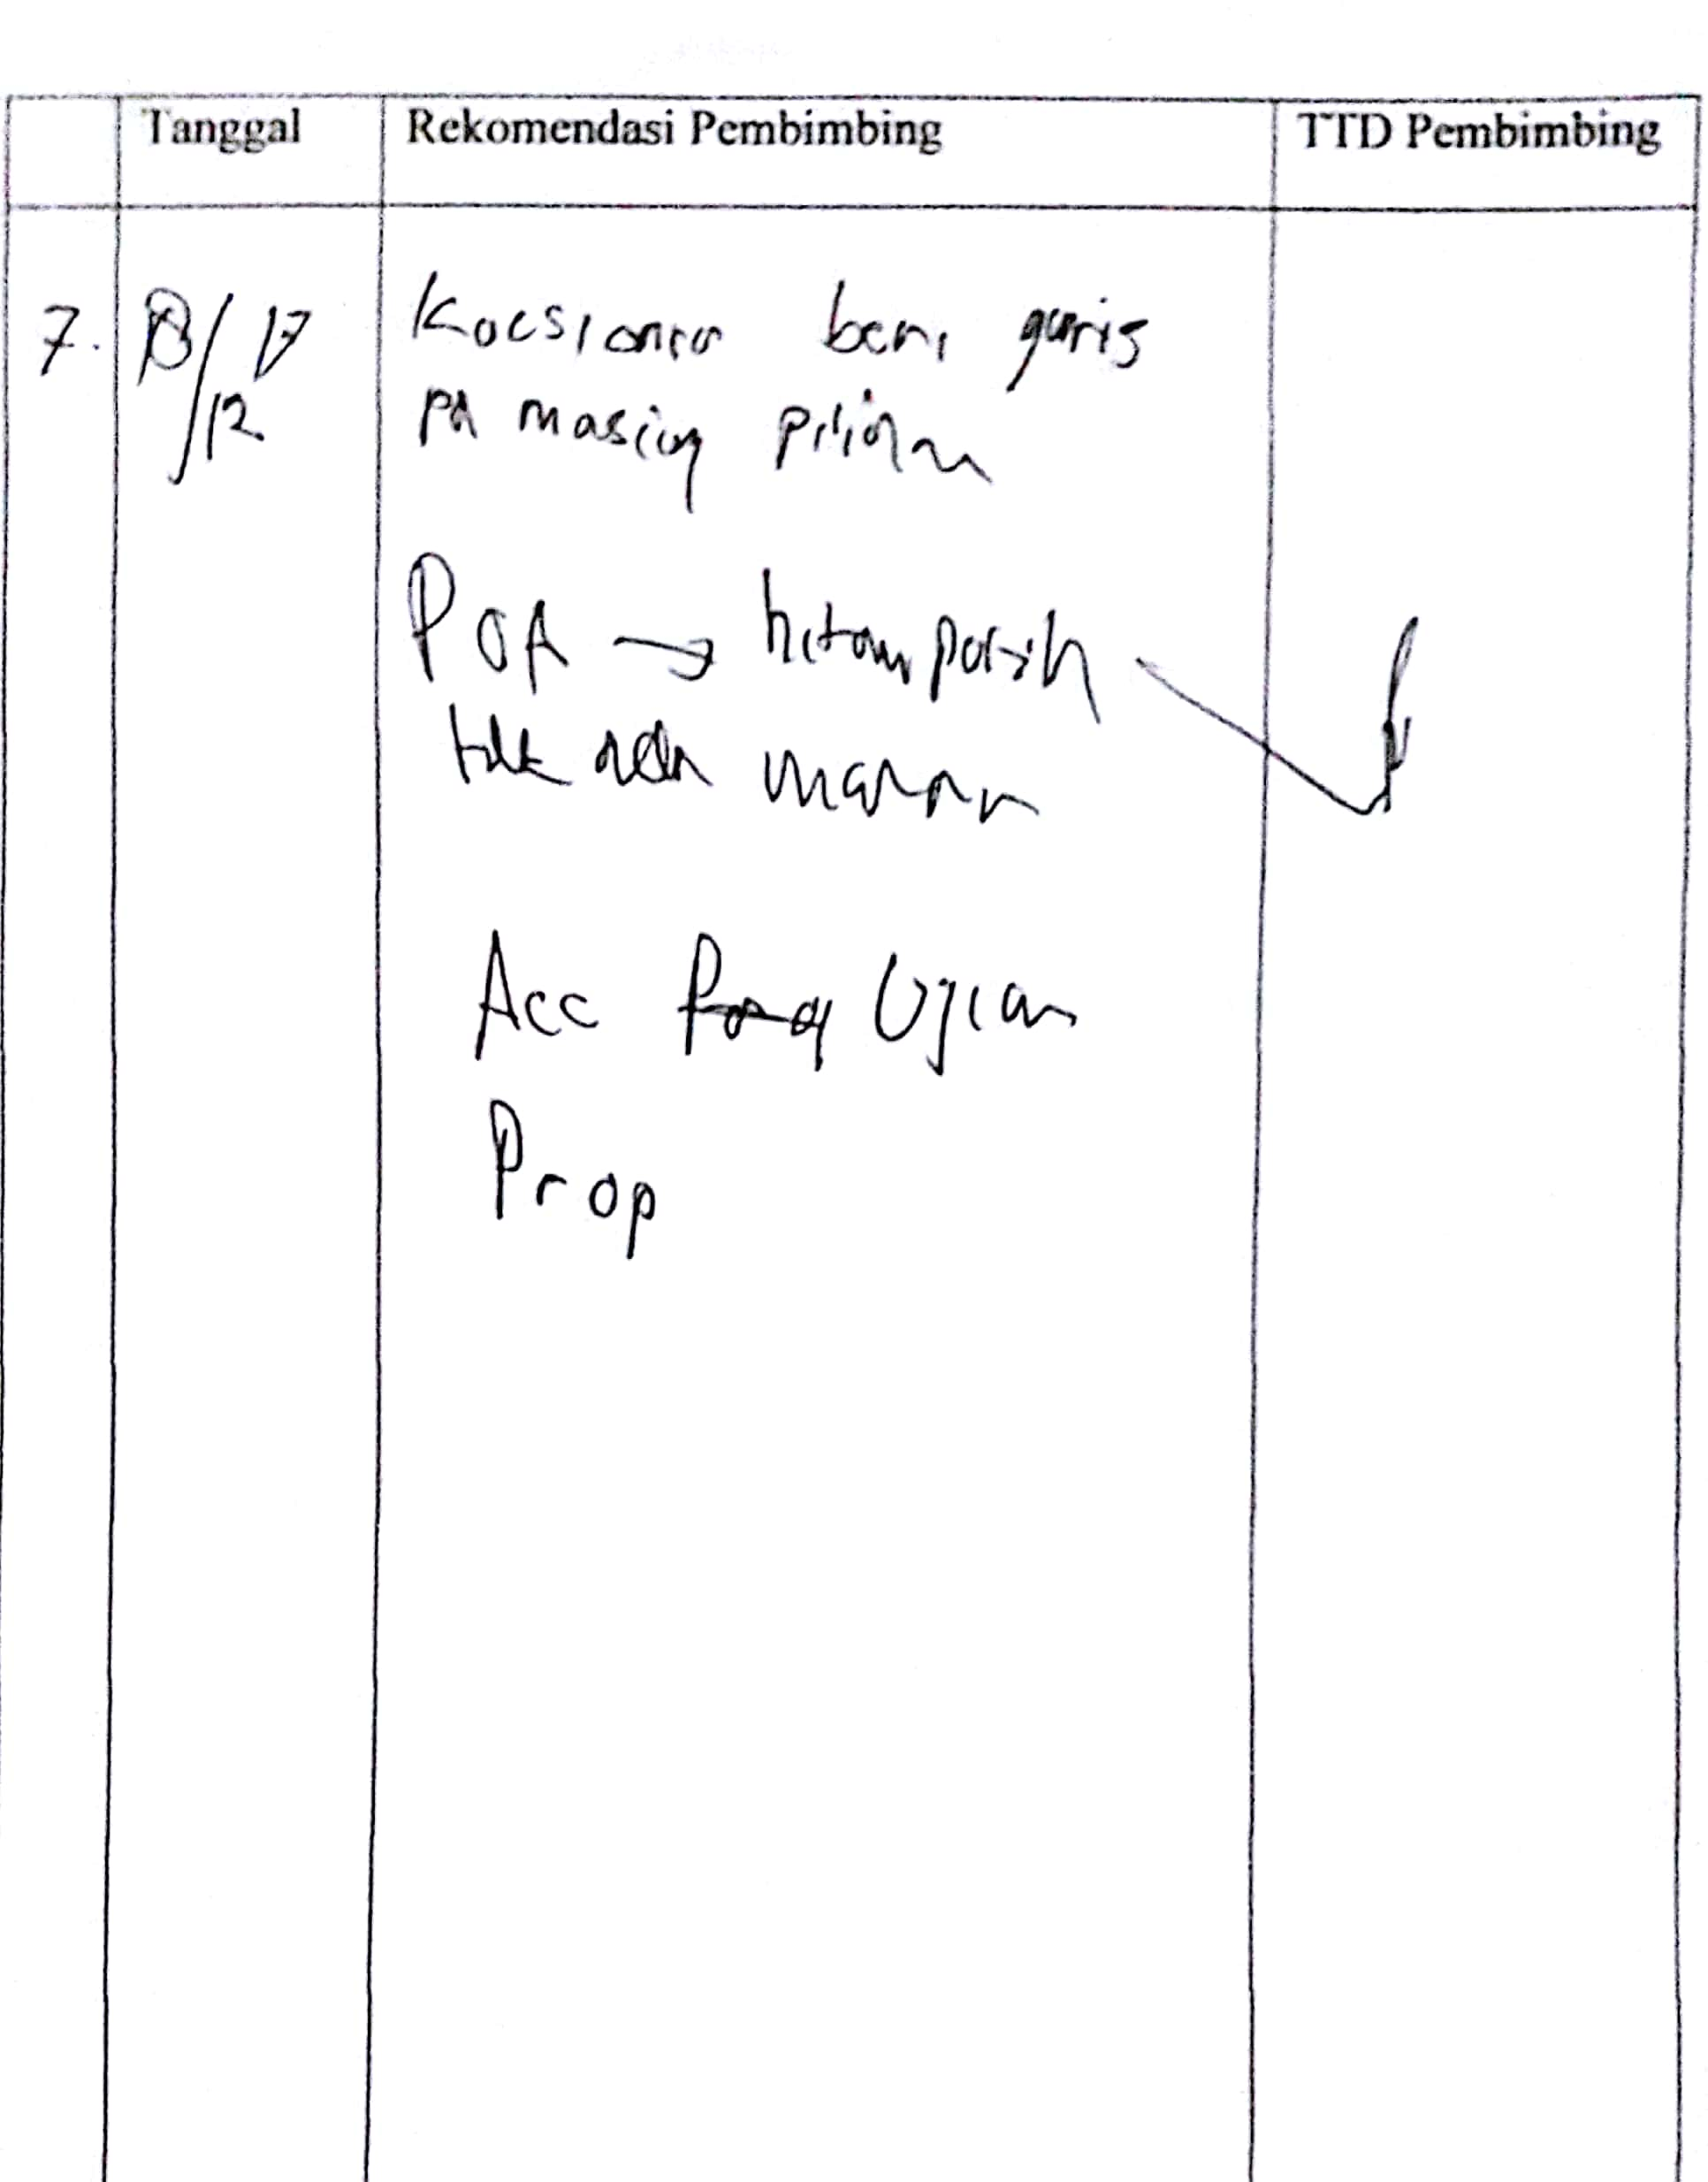 Tanggal Rekomendasi Pembimbing TTD Pembimbing
7. 17 Koesioner beri garis
/12 pd masing pilihan
POA → hitam putih
tdk ada warna
Acc Ujian
Prop